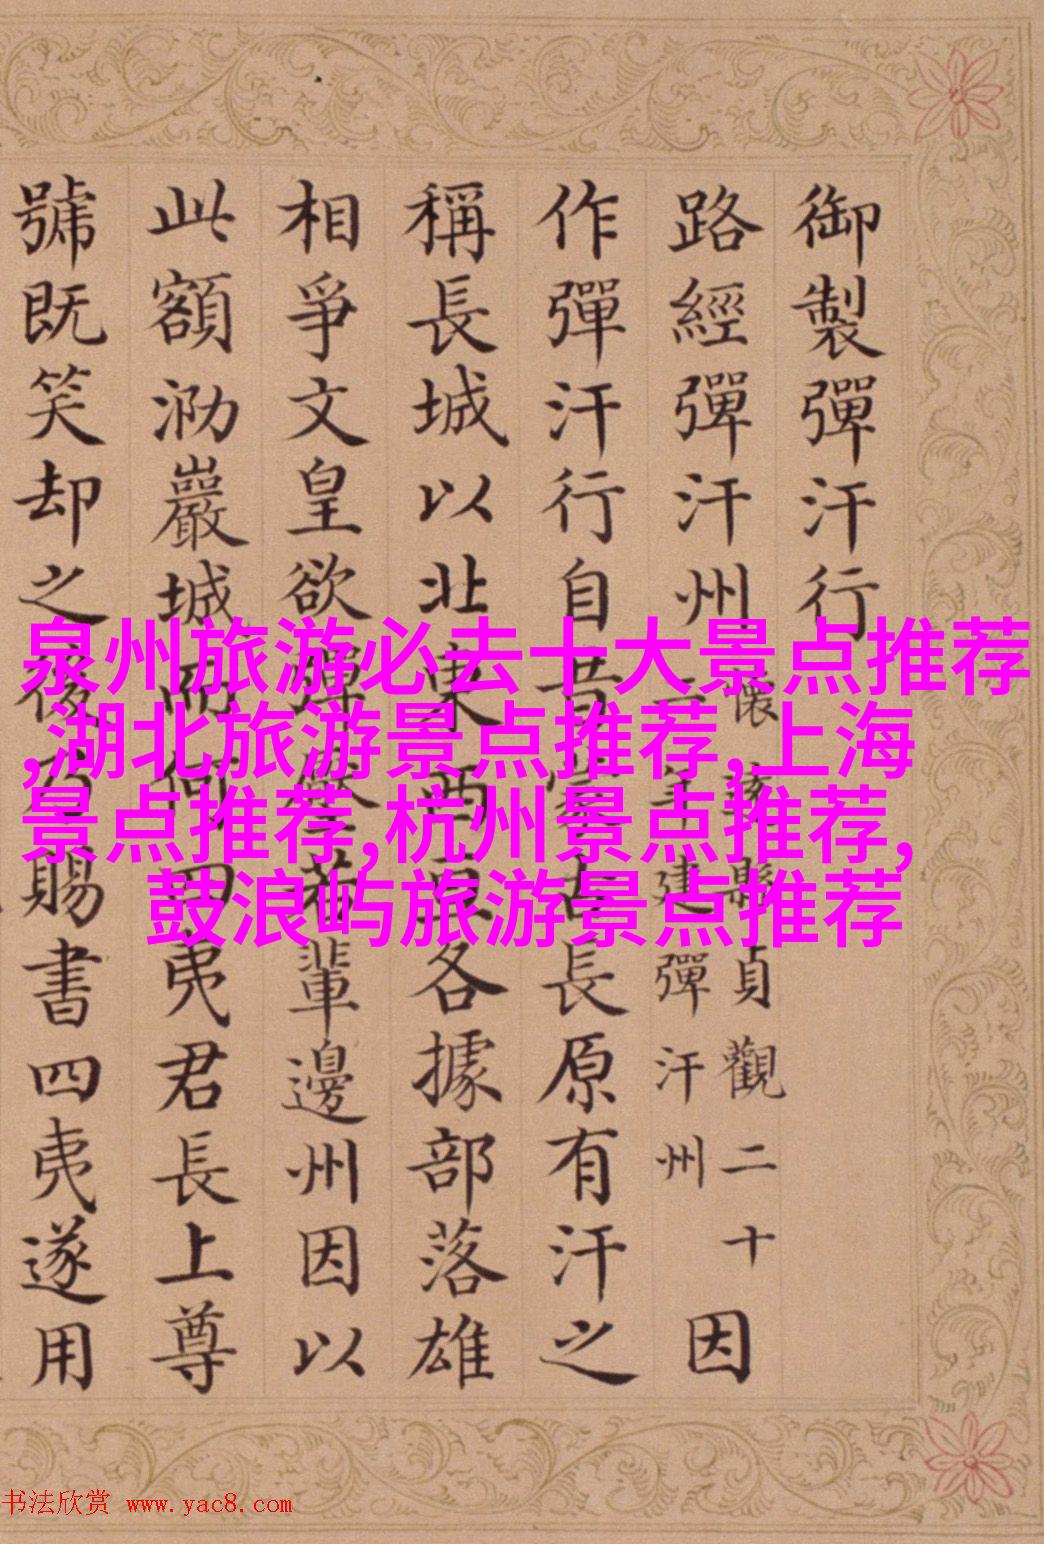 御製彈汗行
路經彈汗州
懷該縣貞觀二十
年建彈汗州
因
作彈汗行自昔蒙古長原有汗之
稱長城以北東西各據部落雄
相爭文皇欲彈壓若輩邊州因以
此額泐巖城而何四夷君長上尊
號既笑却之後乃賜書四夷遂用
泉州旅游必去十大景点推荐
,湖北旅游景点推荐,上海
景点推荐,杭州景点推荐,
鼓浪屿旅游景点推荐
书法欣赏 www.yac8.com